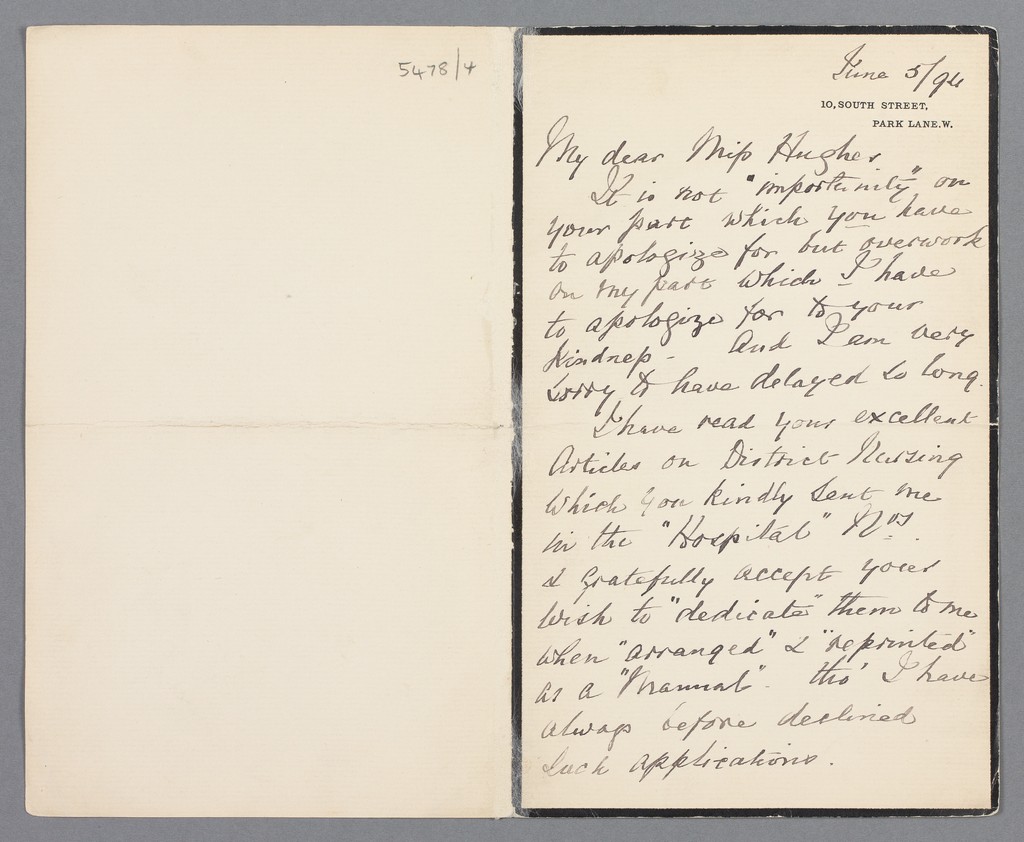 5478/4
June 5/94
10, SOUTH STREET,
PARK LANE. W.
My dear Miss Hughes
It is not "importunity" on
your part which you have
to apologize for but overwork
on my part which I have
to apologize for to your
kindness - And I am very
sorry to have delayed so long.
I have read your excellent
Articles on District Nursing
which you kindly sent me
in the "Hospital" Nos.
& gratefully accept your
wish to "dedicate" them to me
when "arranged" & "reprinted"
as a "Manual" - tho' I have
always before declined
such applications.